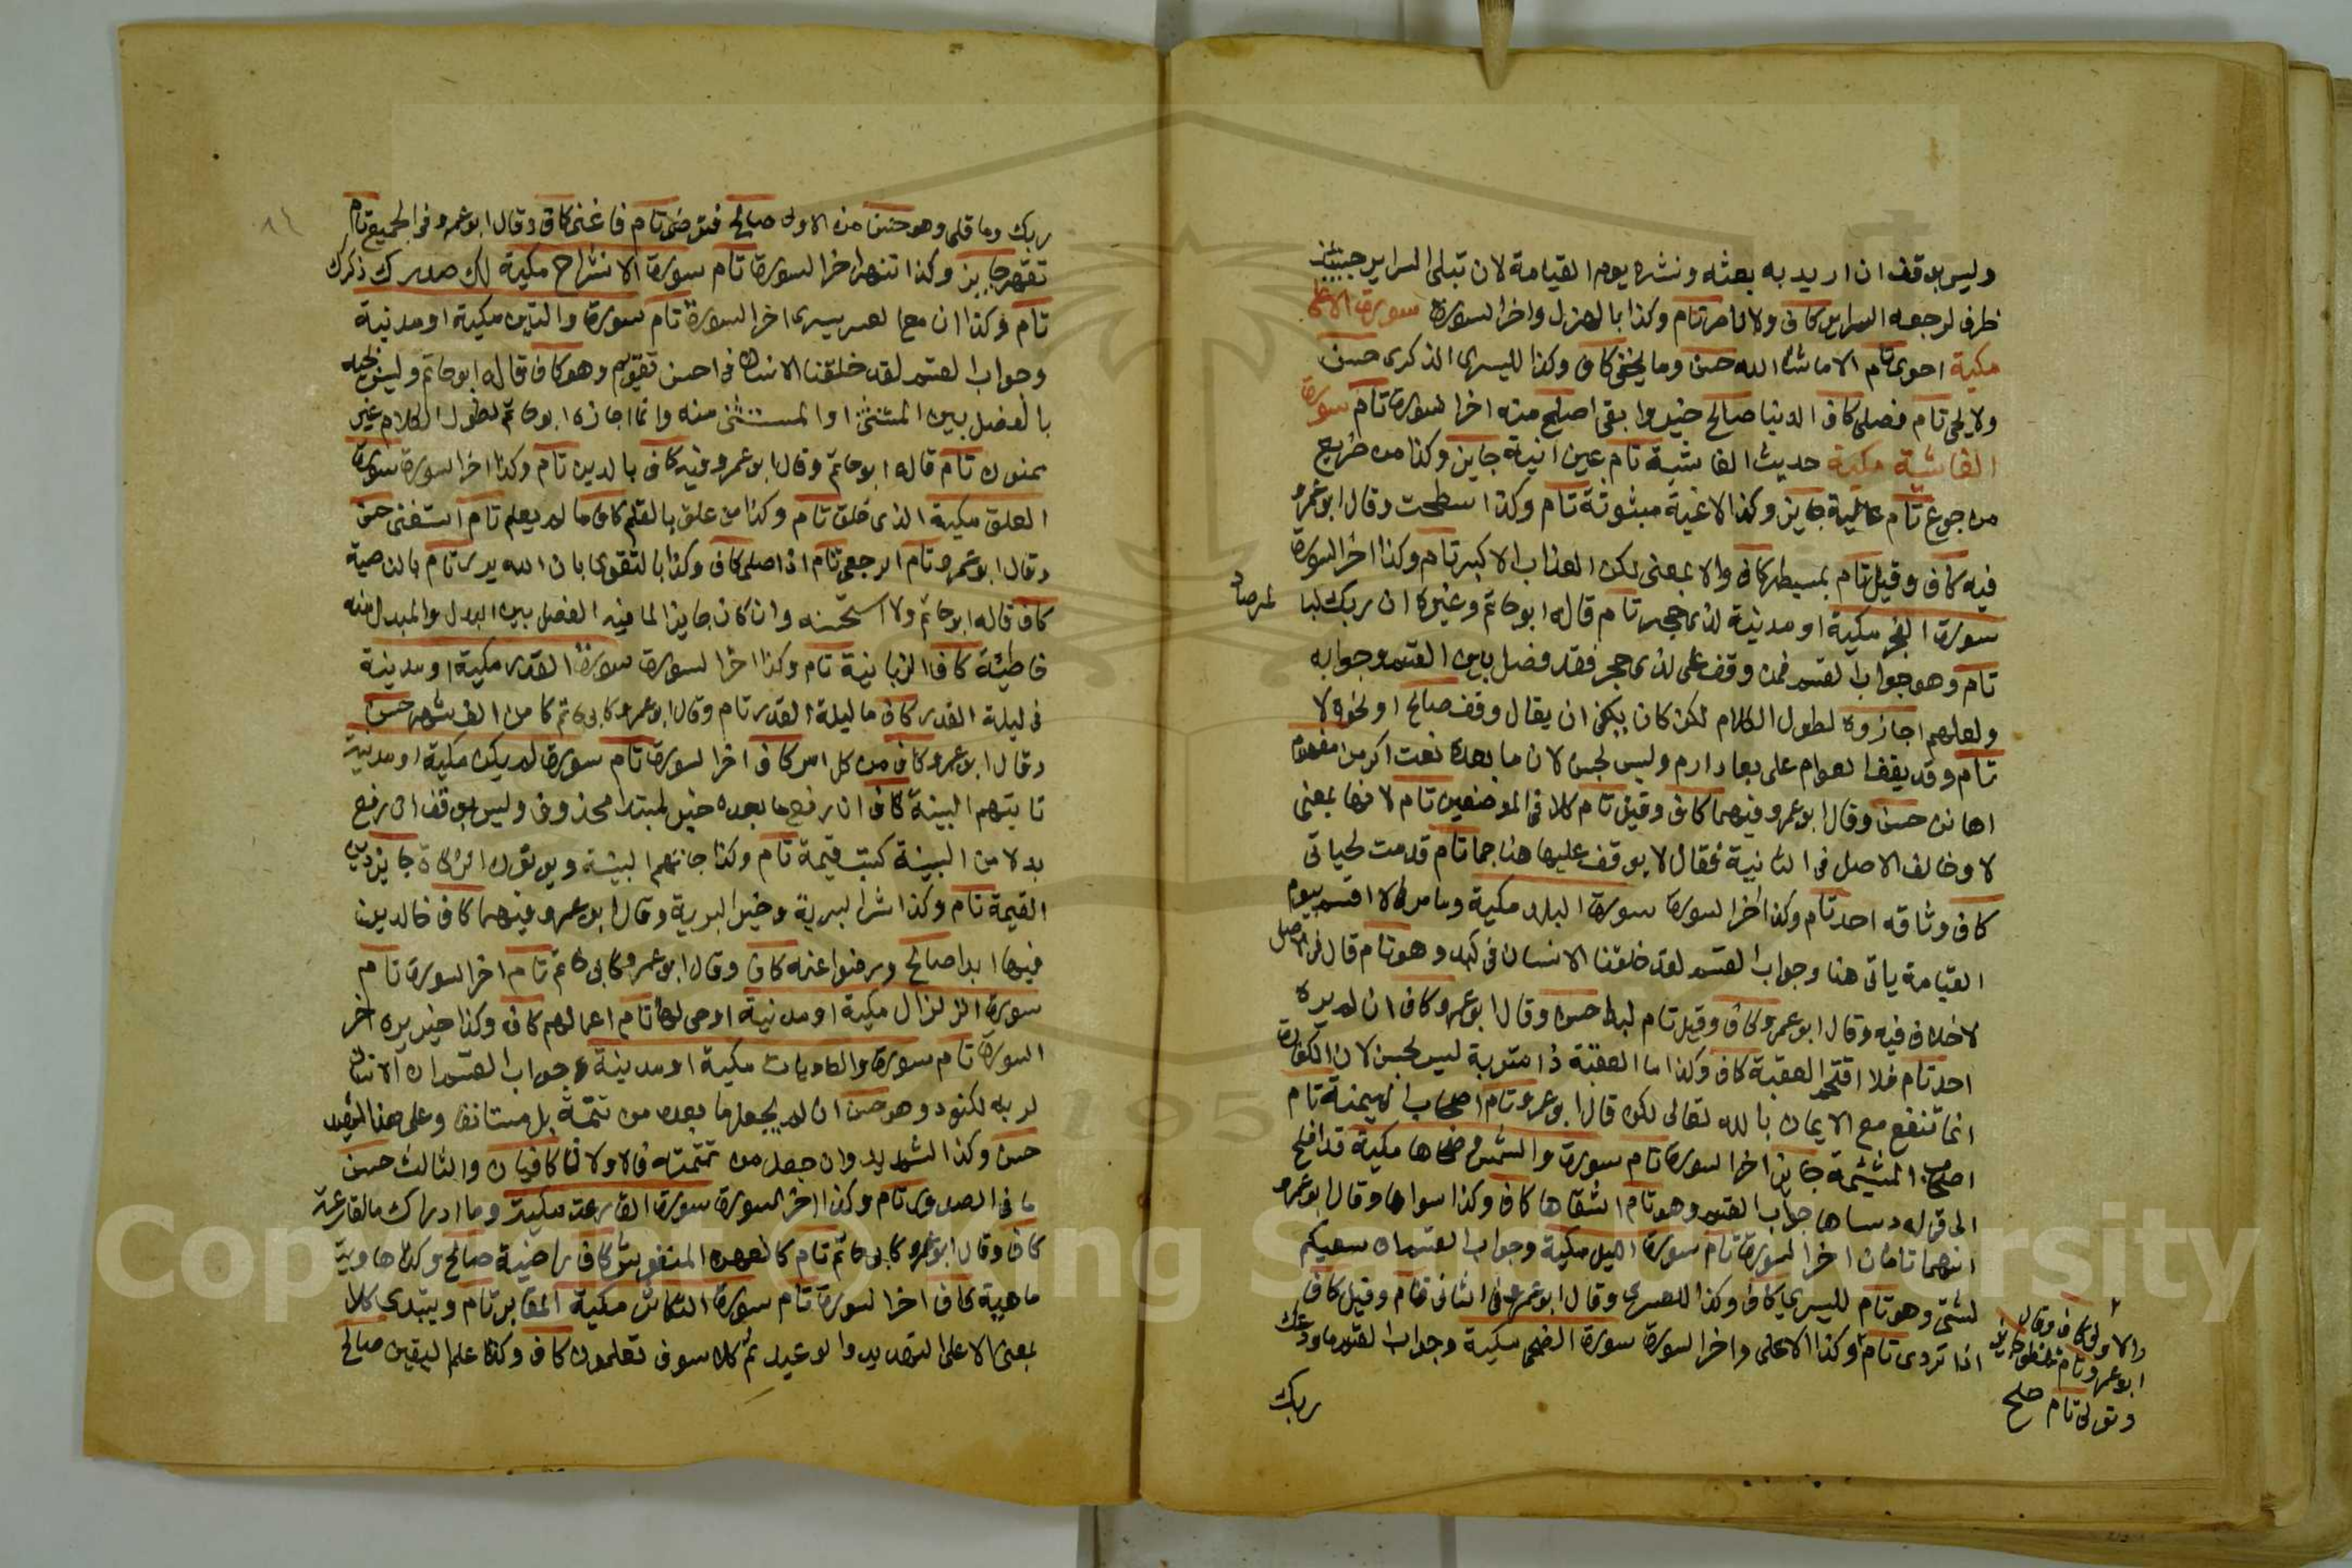 وليس بوقف ان اريد به بعثه ونشره يوم القيامة لان تبلى السراير حينئذ
ظرف لرجعه السراير كاف ولا ناصر تام وكذا بالهزل واخر السورة سورة الاعلى
مكية احوى تام الا ما شاء الله حسن وما يخفى كاف وكذا لليسرى الذكرى حسن
ولا يحيى تام فصلى كاف الدنيا صالح خير وابقى اصلح منه اخر السورة تام سورة
الغاشية مكية حديث الغاشية تام عين انية جايز وكذا من ضريع
من جوع تام عالية جايز وكذا لاغية مبثوثة تام وكذا سطحت وقال ابو عمرو
فيه كاف وقيل تام بمسيطر كاف والا بمعنى لكن العذاب الاكبر تام وكذا اخر السورة
سورة الفجر مكية او مدنية لذى حجر تام قاله ابو حاتم وغيره ان ربك لبا لمرصاد
تام وهو جواب القسم فمن وقف على لذى حجر فقد فصل بين القسم وجوابه
ولعلهم اجازوه لطول الكلام لكن كان ينبغى ان يقال وقف صالح او نحوه لا
تام وقد يقف العوام على بعاد ارم وليس بحسن لان ما بعده نعت اكرمن مفهوم
اهانن حسن وقال ابو عمرو فيهما كاف وقيل تام كلا فى الموضعين تام لانها بمعنى
لا وخالف الاصل فى الثانية فقال لا يوقف عليها هنا جما تام قدمت لحياتى
كاف وثاقه احد تام وكذا اخر السورة سورة البلد مكية وما مر فى لا اقسم بيوم
القيامة ياتى هنا وجواب القسم لقد خلقنا الانسان فى كبد وهو تام قال فى الاصل
لا خلاف فيه وقال ابو عمرو كاف وقيل تام لبدا حسن وقال ابو عمرو كاف ان لم يره
احد تام فلا اقتحم العقبة كاف وكذا ما العقبة ذا متربة ليس بحسن لان الكفارة
انما تنفع مع الايمان بالله تعالى لكن قال ابو عمرو تام اصحاب الميمنة تام
اصحاب المشئمة جايز اخر السورة تام سورة والشمس وضحاها مكية قد افلح
الى قوله دساها جواب القسم وهو تام اشقاها كاف وكذا سواها وقال ابو عمرو
انهما تامان اخر السورة تام سورة الليل مكية وجواب القسم ان سعيكم
لشتى وهو تام لليسرى كاف وكذا للعسرى وقال ابو عمرو فى الثانى تام وقيل كاف
اذا تردى تام وكذا الاعلى واخر السورة سورة الضحى مكية وجواب القسم ما ودعك
والاولى كاف وقال
ابو عمرو تام تلظى جايز
وتولى تام صلح
ربك
ربك وما قلى وهو حسن من الاولى صالح فترضى تام فاغنى كاف وقال ابو عمرو فى الجميع تام
تقهر جايز وكذا تنهر اخر السورة تام سورة الانشراح مكية لك صدرك ذكرك
تام وكذا ان مع العسر يسرى اخر السورة تام سورة والتين مكية او مدنية
وجواب القسم لقد خلقنا الانسان فى احسن تقويم وهو كاف قاله ابو حاتم وليس بجيد
بالفصل بين المستثنى والمستثنى منه وانما اجازه ابو حاتم لطول الكلام غير
ممنون تام قاله ابو حاتم وقال ابو عمرو فيه كاف بالدين تام وكذا اخر السورة سورة
العلق مكية الذى خلق تام وكذا من علق بالقلم كاف ما لم يعلم تام استغنى حسن
وقال ابو عمرو تام الرجعى تام اذا صلى كاف وكذا بالتقوى بان الله يرى تام بالناصية
كاف قاله ابو حاتم ولا استحسنه وان كان جايزا لما فيه الفصل بين البدل والمبدل منه
خاطئة كاف الزبانية تام وكذا اخر السورة سورة القدر مكية او مدنية
فى ليلة القدر كاف ما ليلة القدر تام وقال ابو عمرو كابى حاتم كاف من الف شهر حسن
وقال ابو عمرو كاف من كل امر كاف اخر السورة تام سورة لم يكن مكية او مدنية
تاتيهم البينة كاف ان رفع ما بعده خبر لمبتدا محذوف وليس بوقف ان رفع
بدلا من البينة كتب قيمة تام وكذا جائتهم البينة ويوتون الزكاة جايز دين
القيمة تام وكذا شر البرية وخير البرية وقال ابو عمرو فيهما كاف خالدين
فيها ابدا صالح ورضوا عنه كاف وقال ابو عمرو كابى حاتم تام اخر السورة تام
سورة الزلزال مكية او مدنية اوحى لها تام اعمالهم كاف وكذا خير يره اخر
السورة تام سورة والعاديات مكية او مدنية وجواب القسم ان الانسان
لربه لكنود وهو حسن ان لم يجعل ما بعده من تتمته بل مستانفا وعلى هذا لشهيد
حسن وكذا لشديد وان جعل من تتمته فالاولان كافيان والثالث حسن
ما فى الصدور تام وكذا اخر السورة سورة القارعة مكية وما ادراك ما القارعة
كاف وقال ابو عمرو كابى حاتم تام كالعهن المنفوش كاف راضية صالح وكذا هاوية
ماهيه كاف اخر السورة تام سورة التكاثر مكية المقابر تام ويبتدى كلا
بمعنى الا على التهديد والوعيد ثم كلا سوف تعلمون كاف وكذا علم اليقين صالح
Copyright © King Saud University
195